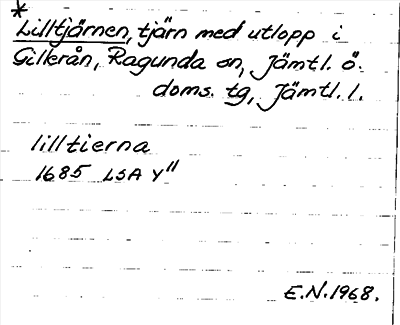 *
Lilltjärnen, tjärn med utlopp i
Gillerån, Ragunda sn, Jämtl. ö.
doms. tg, Jämtl. l.
lilltierna
1685 LSA Y"
E.N. 1968.